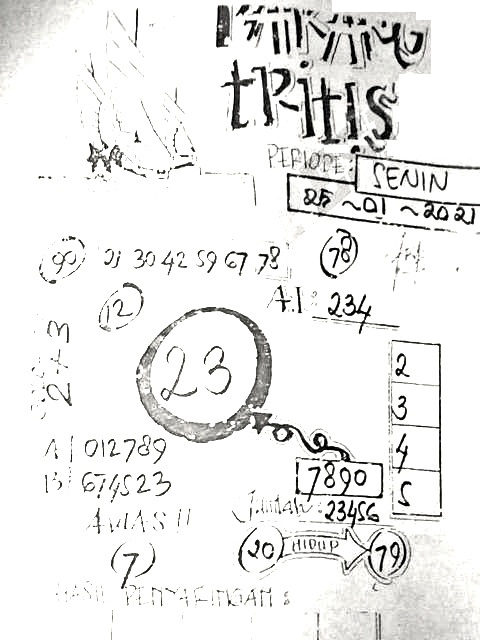 tRitis
PERIODE: SENIN
25 ~ 01 ~ 2021
90 01 30 42 59 67 78
78
A.I: 234
12
2+3
23
2
3
4
5
A| 012789
B| 674523
7890
Jumlah: 23456
AWAS !!
7
20 HIDUP 79
HASIL PENYARINGAN: